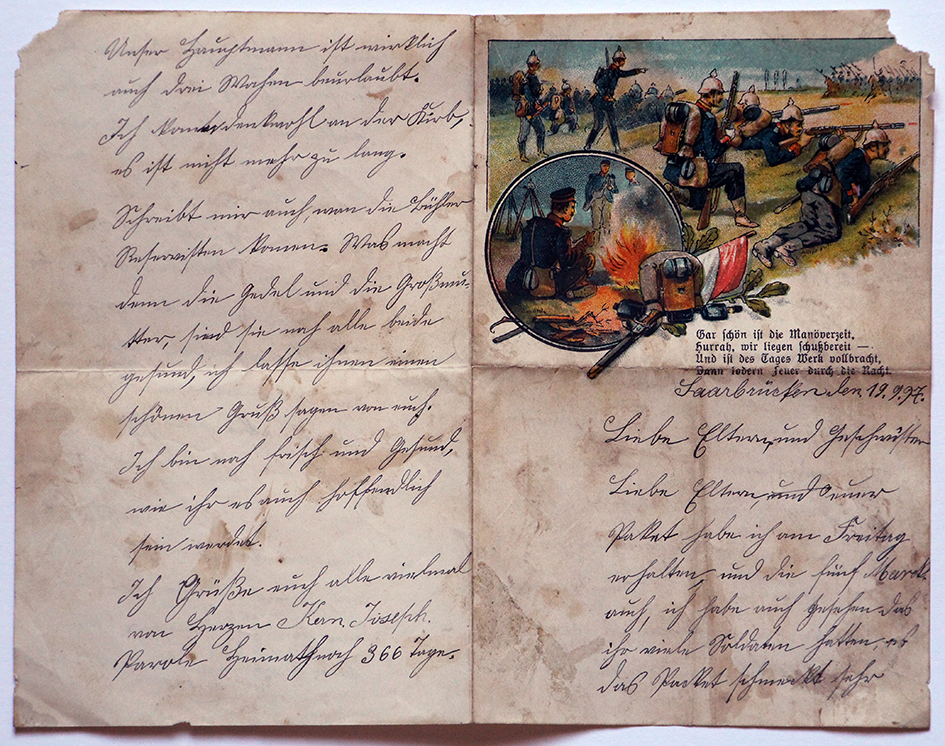 Unser Hauptmann ist wirklich
auch drei Wochen beurlaubt.
Ich denkwohl an der Kirb,
es ist nicht mehr zu lang.
Schreibt mir auch, wan die Bühler
Reservisten komen. Was macht
denn die Gedel und die Großmu-
tter sind sie noch alle beide
gesund, ich lasse ihnen einen
schönen Gruß sagen von euch.
Ich bin noch frisch und Gesund,
wie ihr es auch hoffendlich
sein werdet.
Ich Grüße euch alle vielmal
von Herzen Kan. Joseph.
Parole Heimath noch 366 Tage.
Gar schön ist die Manöverzeit,
Hurrah, wir liegen schußbereit —
Und ist des Tages Werk vollbracht,
Dann lodern Feuer durch die Nacht.
Saarbrücken den 19.9.97.
Liebe Eltern und Geschwister
Liebe Eltern und euer
Paket habe ich am Freitag
erhalten und die fünf Marck
auch, ich habe auch gesehen das
ihr viele Soldaten hatten, es
das Packet schmeckt sehr